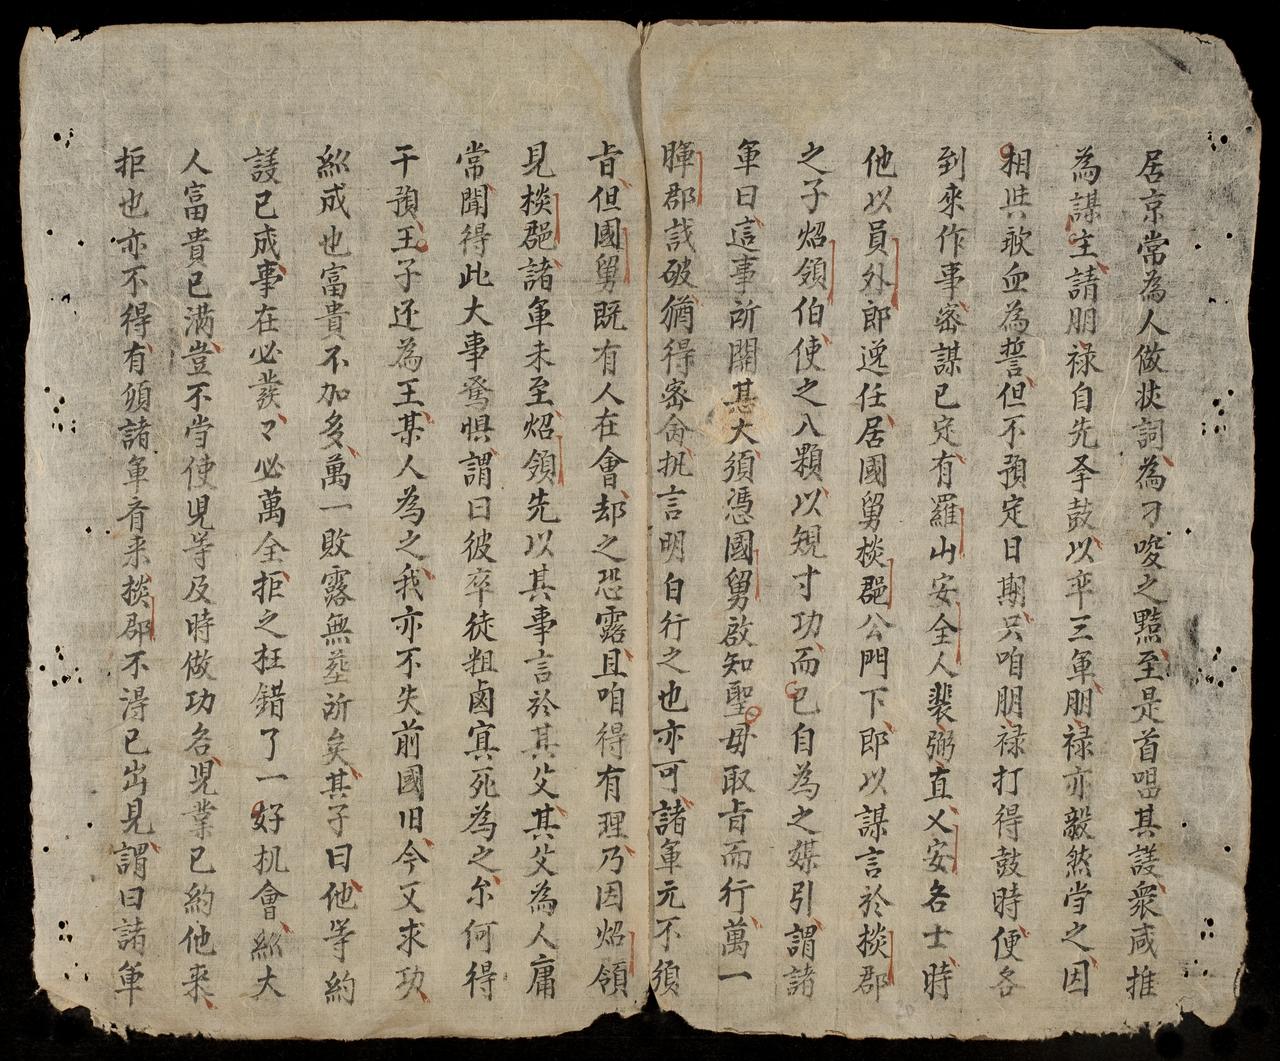 居京常為人做状詞為刁唆之黠至是首唱其議衆咸推
為謀主請朋禄自先孝鼓以卒三軍朋禄亦毅然当之因
相與歃血為誓但不預定日期只咱朋禄打得鼓時便各
到來作事密謀已定有羅山安全人裴弼直乂安各士時
他以員外郎逸任居國舅棪郡公門下即以謀言於棪郡
之子炤領伯使之八顆以規寸功而已自為之媒引謂諸
軍曰這事所關甚大須憑國舅啟知聖母取旨而行萬一
暉郡哉破猶得密禽执言明白行之也亦可諸軍元不須
旨但國舅既有人在會却之恐露且咱得有理乃因炤領
見棪郡諸軍未至炤領先以其事言於其父其父為人庸
常聞得此大事驚惧謂曰彼卒徒粗鹵寘死為之尔何得
干預王子还為王某人為之我亦不失前國旧今又求功
縱成也富貴不加多萬一敗露無塟所矣其子曰他等約
議已成事在必發々必萬全拒之枉錯了一好机會縱大
人富貴已满豈不当使児等及時做功名児業已約他来
拒也亦不得有頒諸軍音来棪郡不淂已出見謂曰諸軍